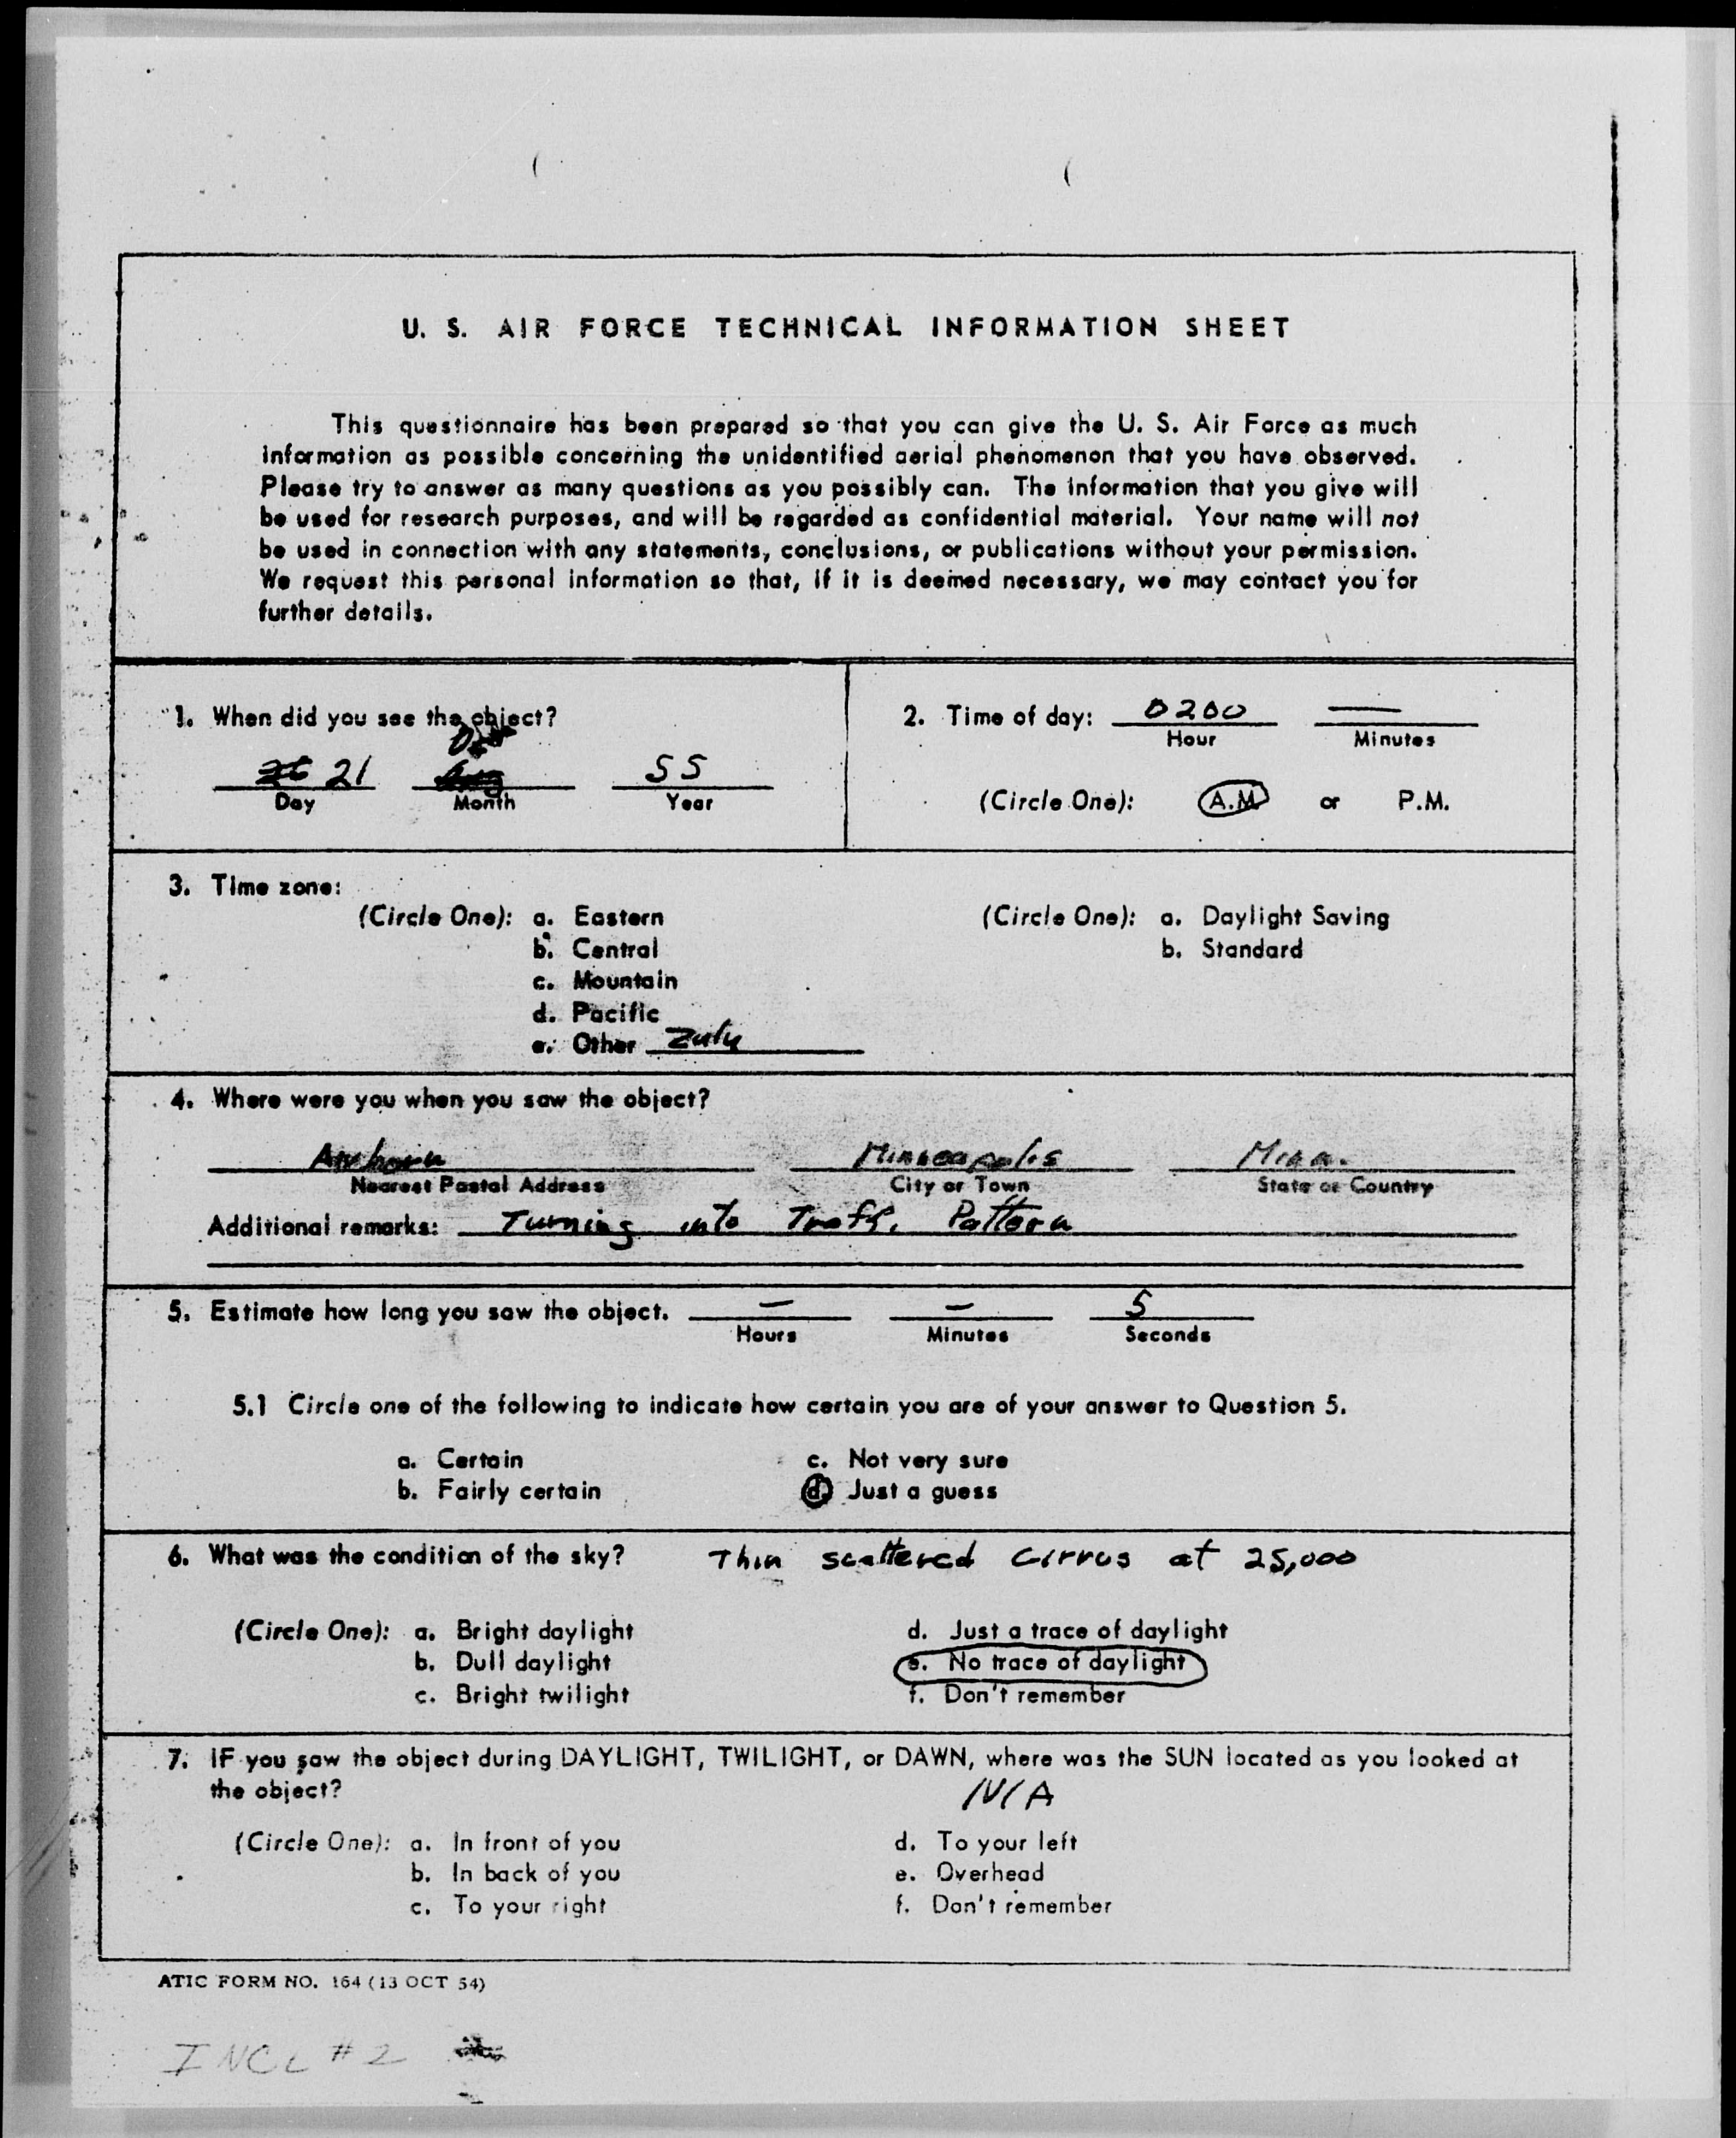 U. S. AIR FORCE TECHNICAL INFORMATION SHEET
This questionnaire has been prepared so that you can give the U. S. Air Force as much
information as possible concerning the unidentified aerial phenomenon that you have observed.
Please try to answer as many questions as you possibly can. The information that you give will
be used for research purposes, and will be regarded as confidential material. Your name will not
be used in connection with any statements, conclusions, or publications without your permission.
We request this personal information so that, if it is deemed necessary, we may contact you for
further details.
1. When did you see the object?
21 55
Day Month Year
2. Time of day: 0200 —
Hour Minutes
(Circle One): A.M. or P.M.
3. Time zone:
(Circle One): a. Eastern
b. Central
c. Mountain
d. Pacific
e. Other Zulu
(Circle One): a. Daylight Saving
b. Standard
4. Where were you when you saw the object?
Airborn Minneapolis Minn.
Nearest Postal Address City or Town State or Country
Additional remarks: Turning into Traffic Pattern
5. Estimate how long you saw the object. — — 5
Hours Minutes Seconds
5.1 Circle one of the following to indicate how certain you are of your answer to Question 5.
a. Certain
b. Fairly certain
c. Not very sure
d. Just a guess
6. What was the condition of the sky? Thin scattered Cirrus at 25,000
(Circle One): a. Bright daylight
b. Dull daylight
c. Bright twilight
d. Just a trace of daylight
e. No trace of daylight
f. Don't remember
7. IF you saw the object during DAYLIGHT, TWILIGHT, or DAWN, where was the SUN located as you looked at
the object? N/A
(Circle One): a. In front of you
b. In back of you
c. To your right
d. To your left
e. Overhead
f. Don't remember
ATIC FORM NO. 164 (13 OCT 54)
INCL #2